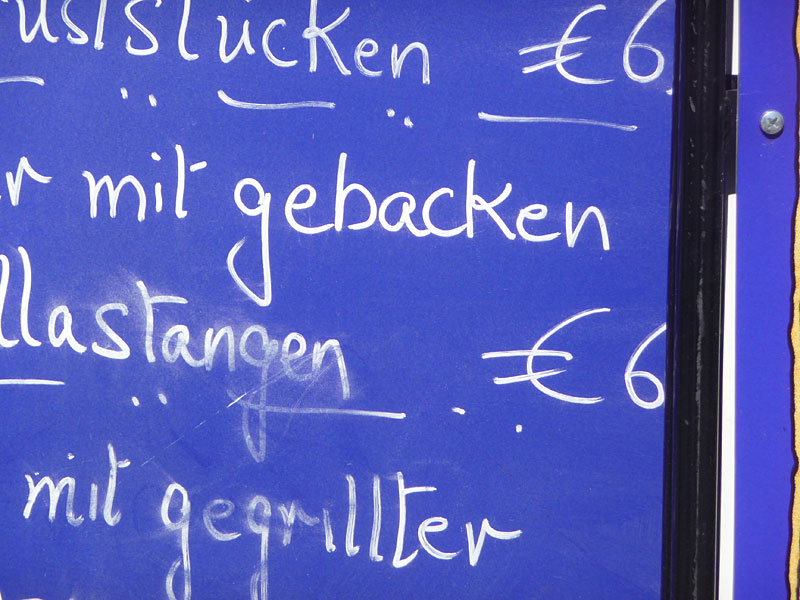 uststücken €6
r mit gebacken
llastangen €6
mit gegrillter